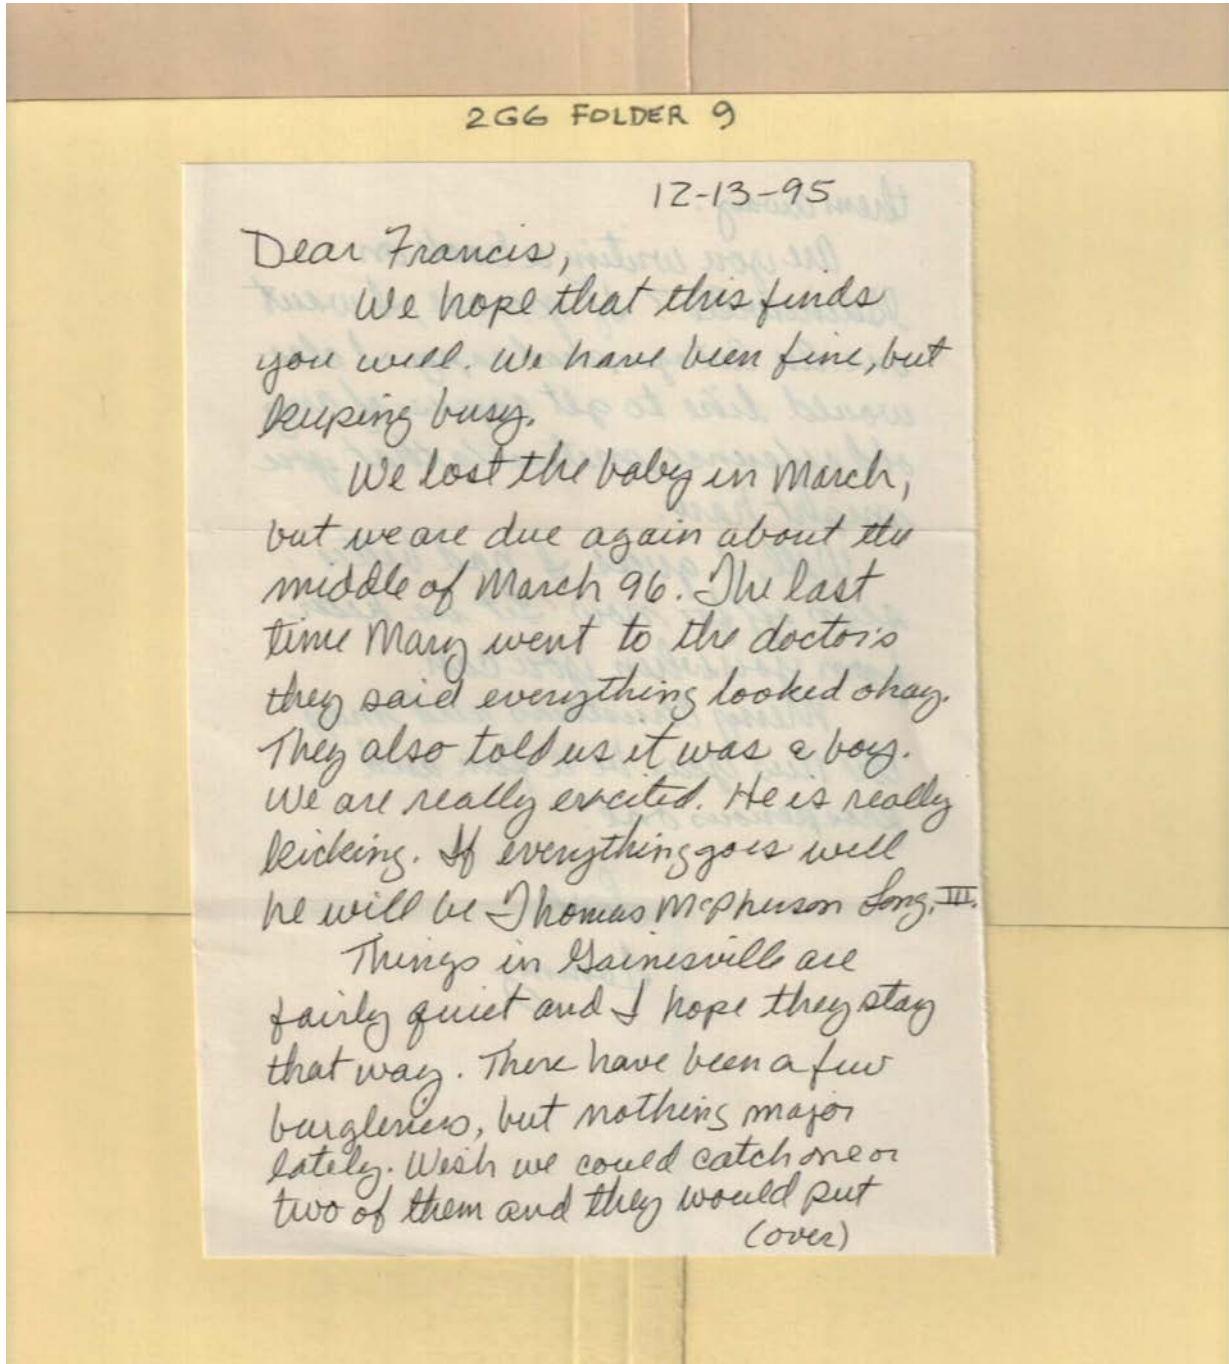 2G6 FOLDER 9
12-13-95
Dear Francis,
We hope that this finds
you well. We have been fine, but
keeping busy.
We lost the baby in March,
but we are due again about the
middle of March 96. The last
time Mary went to the doctor's
they said everything looked okay.
They also told us it was a boy.
We are really excited. He is really
kicking. If everything goes well
he will be Thomas McPherson Long, III.
Things in Gainesville are
fairly quiet and I hope they stay
that way. There have been a few
burgleries, but nothing major
lately. Wish we could catch one or
two of them and they would put
(over)